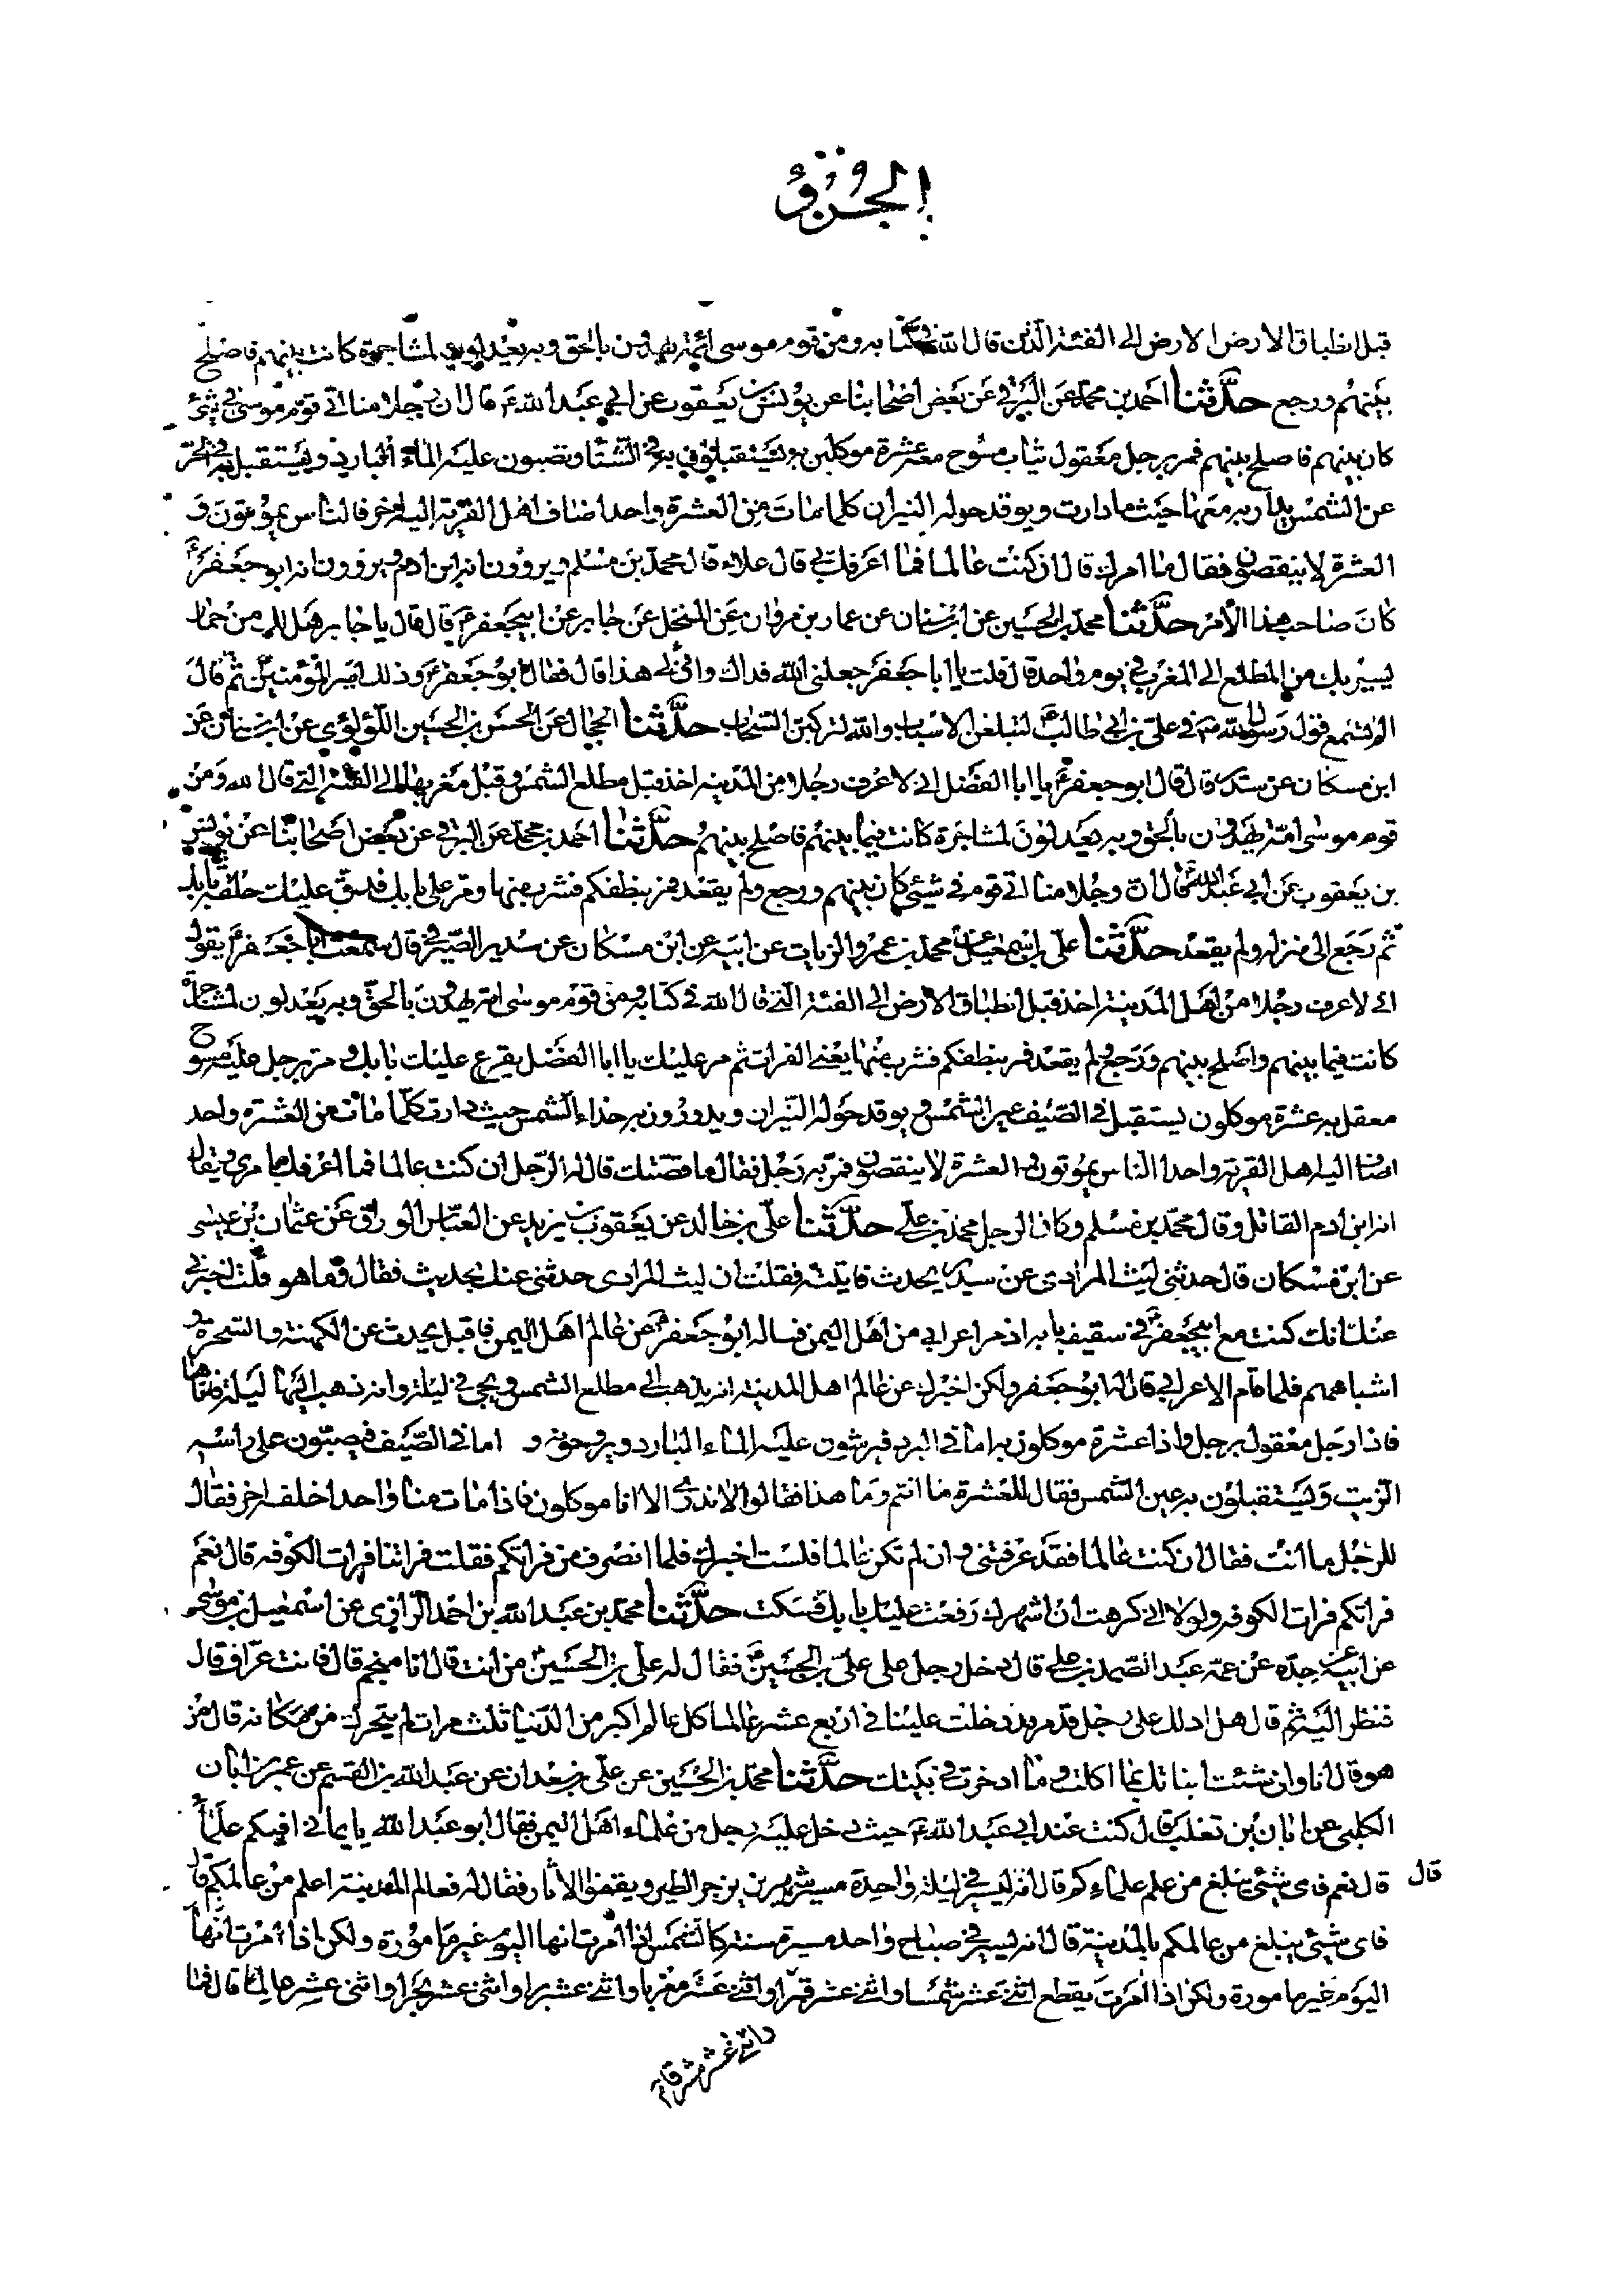 الجزؤ
قبل انطباق الارض الارض الى الفئة الذين قال الله في كتابه ومن قوم موسى ائمة يهدون بالحق وبه يعدلون لمشاجرة كانت بينهم فاصلح
بينهم ورجع حدثنا احمد بن محمد عن البرقي عن بعض اصحابنا عن يونس بن يعقوب عن ابي عبد الله ع قال ان رجلا منا اتى قوم موسى في شئ
كان بينهم فاصلح بينهم فمر برجل معقول ثياب مسوح معه عشرة موكلين به يستقبلون في الشتا ويصبون عليه الماء البارد ويستقبل به في الحر
عن الشمس يدار به معها حيث ما دارت ويوقد حوله النيران كلما مات من العشرة واحدا ضاف اهل القرية اليه اخر فالناس يموتون و
العشرة لا ينقصون فقال ما امرك قال ان كنت عالما فما اعرفك بي قال علاء قال محمد بن مسلم ويروون انه ابن ادم ويروون انه ابو جعفر ع
كان صاحب هذا الأمر حدثنا محمد بن الحسين عن ابن سنان عن عمار بن مروان عن المنخل عن جابر عن ابيجعفر ع قال قال يا جابر هل لك من حمار
يسير بك من المطلع الى المغرب في يوم واحد قال قلت يا ابا جعفر جعلني الله فداك وانى لي هذا قال فقال ابو جعفر ع وذلك امير المؤمنين ثم قال
الم تسمع قول رسول الله ص في علي بن ابي طالب ع لتبلغن الاسباب والله لتركبن السحاب حدثنا الحجال عن الحسن بن الحسين اللؤلؤي عن ابن سنان عن
ابن مسكان عن سدير قال قال ابو جعفر ع يا ابا الفضل اني لا عرف رجلا من المدينه اخذ قبل مطلع الشمس وقبل مغربها الى الفئة التي قال الله ومن
قوم موسى امة يهدون بالحق وبه يعدلون لمشاجرة كانت فيما بينهم فاصلح بينهم حدثنا احمد بن محمد عن البرقي عن بعض اصحابنا عن يونس
بن يعقوب عن ابي عبد الله ع قال ان رجلا منا اتى قوم في شيئ كان بينهم ورجع ولم يقعد فمر بنطفكم فشرب منها ومر على بابك فدق عليك حلقة بابك
ثم رجع الى منزله ولم يقعد حدثنا علي بن اسمعيل عن محمد بن عمرو الزيات عن ابيه عن ابن مسكان عن سدير الصيرفي قال سمعت ابا جعفر ع يقول
اني لا عرف رجلا من اهل المدينة اخذ قبل انطباق الارض الى الفئة التي قال الله في كتابه ومن قوم موسى امة يهدون بالحق وبه يعدلون لمشاجرة
كانت فيما بينهم واصلح بينهم ورجع ولم يقعد فمر بنطفكم فشرب منها يعني الفرات ثم مر عليك يا ابا الفضل يقرع عليك بابك ومر برجل عليه مسوح
معقل به عشرة موكلون يستقبل في الصيف عين الشمس ويوقد حوله النيران ويدورون به حذاء الشمس حيث دارت كلما مات من العشرة واحد
اضاف اليه اهل القرية واحدا الناس يموتون والعشرة لا ينقصون فمر به رجل فقال ما قصتك قال له الرجل ان كنت عالما فما اعرفك بامري ويقال
انه ابن ادم القاتل وقال محمد بن مسلم وكان الرجل محمد بن علي حدثنا علي بن خالد عن يعقوب بن يزيد عن العباس الوراق عن عثمان بن عيسى
عن ابن مسكان قال حدثني ليث المرادي عن سدير يحدث فاتيته فقلت ان ليث المرادى حدثنى عنك بحديث فقال وما هو قلت اخبرني
عنك انك كنت مع ابيجعفر ع في سقيفة بابه اذ مر اعرابي من اهل اليمن فساله ابو جعفر ع عن عالم اهل اليمن فاقبل يحدث عن الكهنة والسحرة و
اشباههم فلما قام الاعرابي قال له ابو جعفر ولكن اخبرك عن عالم اهل المدينة انه يذهب الى مطلع الشمس ويجئ في ليلة وانه ذهب اليها ليلة فاتاها
فاذا رجل معقول برجل واذا عشرة موكلون به اما في البرد فيرشون عليه الماء البارد ويروحونه و اما في الصيف فيصبون على راسه
الزيت ويستقبلون به عين الشمس فقال للعشرة ما انتم وما هذا فقالوا لا ندري الا انا موكلون فاذا مات منا واحدا خلفه اخر فقال
للرجل ما انت فقال ان كنت عالما فقد عرفتنى وان لم تكن عالما فلست اخبرك فلما انصرف من فراتكم فقلت فراتنا فرات الكوفه قال نعم
فراتكم فرات الكوفه ولولا اني كرهت ان اشهرك دفعت عليك بابك فسكت حدثنا محمد بن عبد الله بن احمد الرازي عن اسمعيل بن موسى
عن ابيه عن جده عن عمه عبد الصمد بن علي قال دخل رجل على علي بن الحسين ع فقال له علي بن الحسين من انت قال انا منجم قال فانت عراف قال
فنظر اليه ثم قال هل ادلك على رجل قد مر مذ دخلت علينا في اربع عشر عالما كل عالم اكبر من الدنيا ثلث مرات لم يتحرك من مكانه قال من
هو قال انا وان شئت انباتك بما اكلت وما ادخرت في بيتك حدثنا محمد بن الحسين عن علي بن سعدان عن عبد الله بن القسم عن عمر بن ابان
الكلبي عن ابان بن تغلب قال كنت عند ابي عبد الله ع حيث دخل عليه رجل من علماء اهل اليمن فقال ابو عبد الله يا يماني افيكم علماء
قال نعم فاى شئ يبلغ من علم علماءكم قال انه ليسير في ليلة واحدة مسيرة شهرين يزجر الطير ويقفو الاثار فقال له فعالم المدينة اعلم من عالمكم قال
قال
فاى شئ يبلغ من عالمكم بالمدينة قال انه ليسير في صباح واحد مسيرة سنة كالشمس اذا امرت انها اليوم غير مامورة ولكن اذا امرت انها
اليوم غير مامورة ولكن اذا امرت يقطع اثنى عشر شمسا واثنى عشر قمرا واثنى عشر مغربا واثنى عشر برا واثنى عشر بحرا واثنى عشر عالما قال فما
واثنى عشر مشرقا